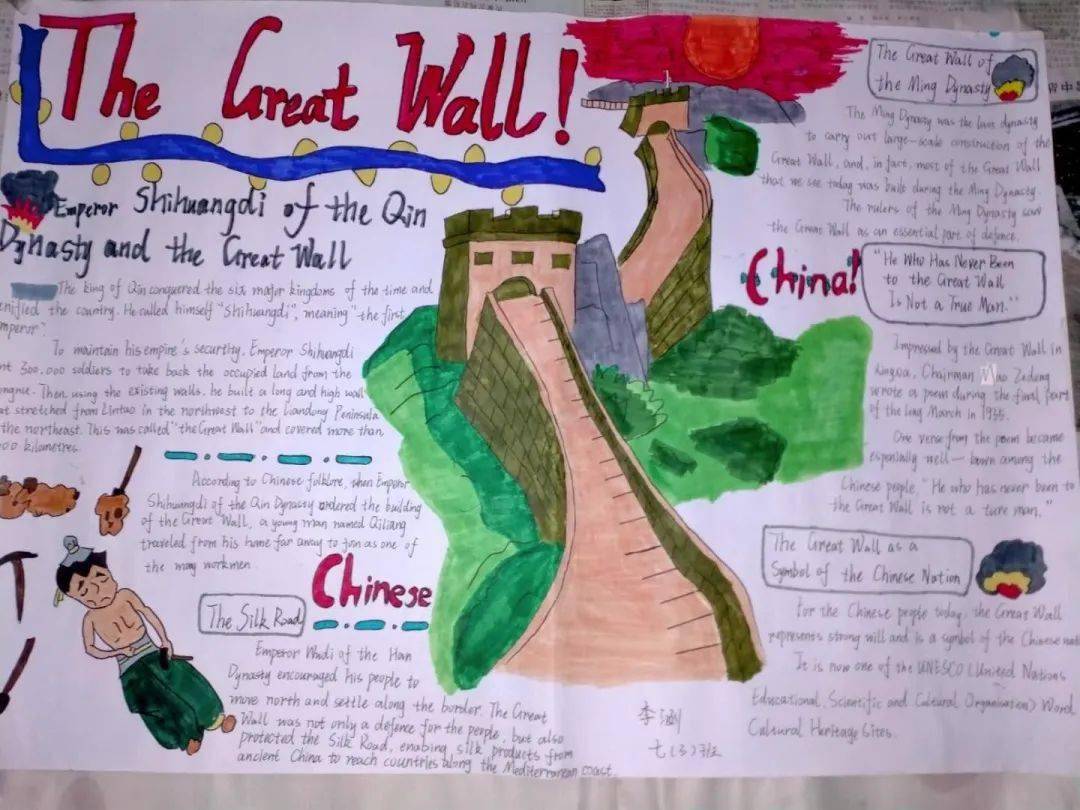 The Great Wall!
Emperor Shihuangdi of the Qin
Dynasty and the Great Wall
The king of Qin conquered the six major kingdoms of the time and
enified the country. He called himself "Shihuangdi", meaning "the first
mperor".
To maintain his empire's securthy, Emperor Shihuangdi
nt 300,000 soldiers to take back the occupied land from the
ongnu. Then, using the existing walls, he built a long and high wall
at stretched from Lintao in the northwest to the Liandong Peninsala
the northeast. This was called "the Great Wall" and covered more than
000 kilometres.
According to Chinese folklore, when Emperor
Shihuangdi of the Qin Dynasty ordered the building
of the Great Wall, a young man named Qiliang
traveled from his home far away to join as one of
the many workmen.
Chinese
The Silk Road
Emperor Wudi of the Han
Dynasty encouraged his people to
move north and settle along the border. The Great
Wall was not only a defense for the people, but also
protected the Silk Road, enabing silk products from
ancient China to reach countries along the Mediterranean coast.
The Great Wall of
the Ming Dynasty
The Ming Dynasty was the last dynasty
to carry out large-scale construction of the
Great Wall, and, in fact, most of the Great Wall
that we see today was built during the Ming Dynasty.
The rulers of the Ming Dynasty saw
the Great Wall as an essential part of defence.
China!
"He Who Has Never Been
to the Great Wall
Is Not a True Man."
Impressed by the Great Wall in
Chairman Mao Zedong
wrote a poem during the final part
of the long March in 1935.
One verse from the poem became
especially well-kown among the
Chinese people, "He who has never been to
the Great Wall is not a ture man."
The Great Wall as a
Symbol of the Chinese Nation
For the Chinese people today, the Great Wall
represents strong will and is a symbol of the Chinese nat
It is now one of the UNESCO (United Nations
Educational, Scientific and Cultural Organisation) Word
Cultural Heritage Sites.
李
七(3)班